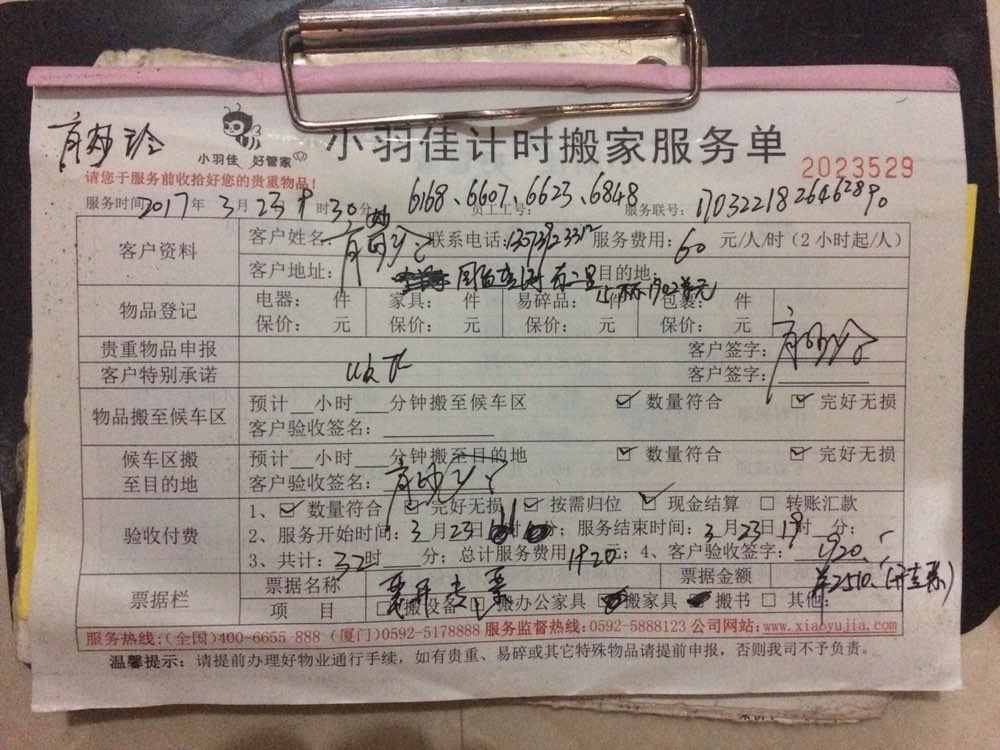 小羽佳 好管家
小羽佳计时搬家服务单
2023529
请您于服务前收拾好您的贵重物品！
6168、6607、6623、6848
服务时间：2017年3月23日 时30分 员工工号： 服务联号：
客户资料 客户姓名： 联系电话： 服务费用：60元/人/时（2小时起/人）
客户地址： 目的地：
物品登记 电器： 件 家具： 件 易碎品： 件 包装： 件
保价： 元 保价： 元 保价： 元 保价： 元
贵重物品申报 客户签字：
客户特别承诺 客户签字：
物品搬至候车区 预计__小时___分钟搬至候车区 ☑ 数量符合 ☑ 完好无损
客户验收签名：
候车区搬至目的地 预计__小时___分钟搬至目的地 ☑ 数量符合 ☑ 完好无损
客户验收签名：
验收付费 1、☑ 数量符合 ☑ 完好无损 ☑ 按需归位 ☑ 现金结算 □ 转账汇款
2、服务开始时间：3月23日 时 分；服务结束时间：3月23日19时 分；
3、共计：32时 分；总计服务费用1920元；4、客户验收签字：1920.
票据栏 票据名称 票据金额
项 目 □搬设备 □搬办公家具 搬家具 搬书 □ 其他：
服务热线：(全国)400-6655-888 (厦门)0592-5178888 服务监督热线：0592-5888123 公司网站：www.xiaoyujia.com
温馨提示：请提前办理好物业通行手续，如有贵重、易碎或其它特殊物品请提前申报，否则我司不予负责。